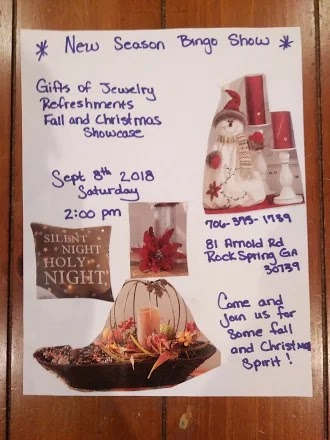 * New Season Bingo Show *
Gifts of Jewelry
Refreshments
Fall and Christmas
Showcase
Sept 8th 2018
Saturday
2:00 pm
706-375-1739
81 Arnold Rd
Rock Spring GA
30739
SILENT
NIGHT
HOLY
NIGHT
Come and
join us for
some fall
and Christmas
Spirit!